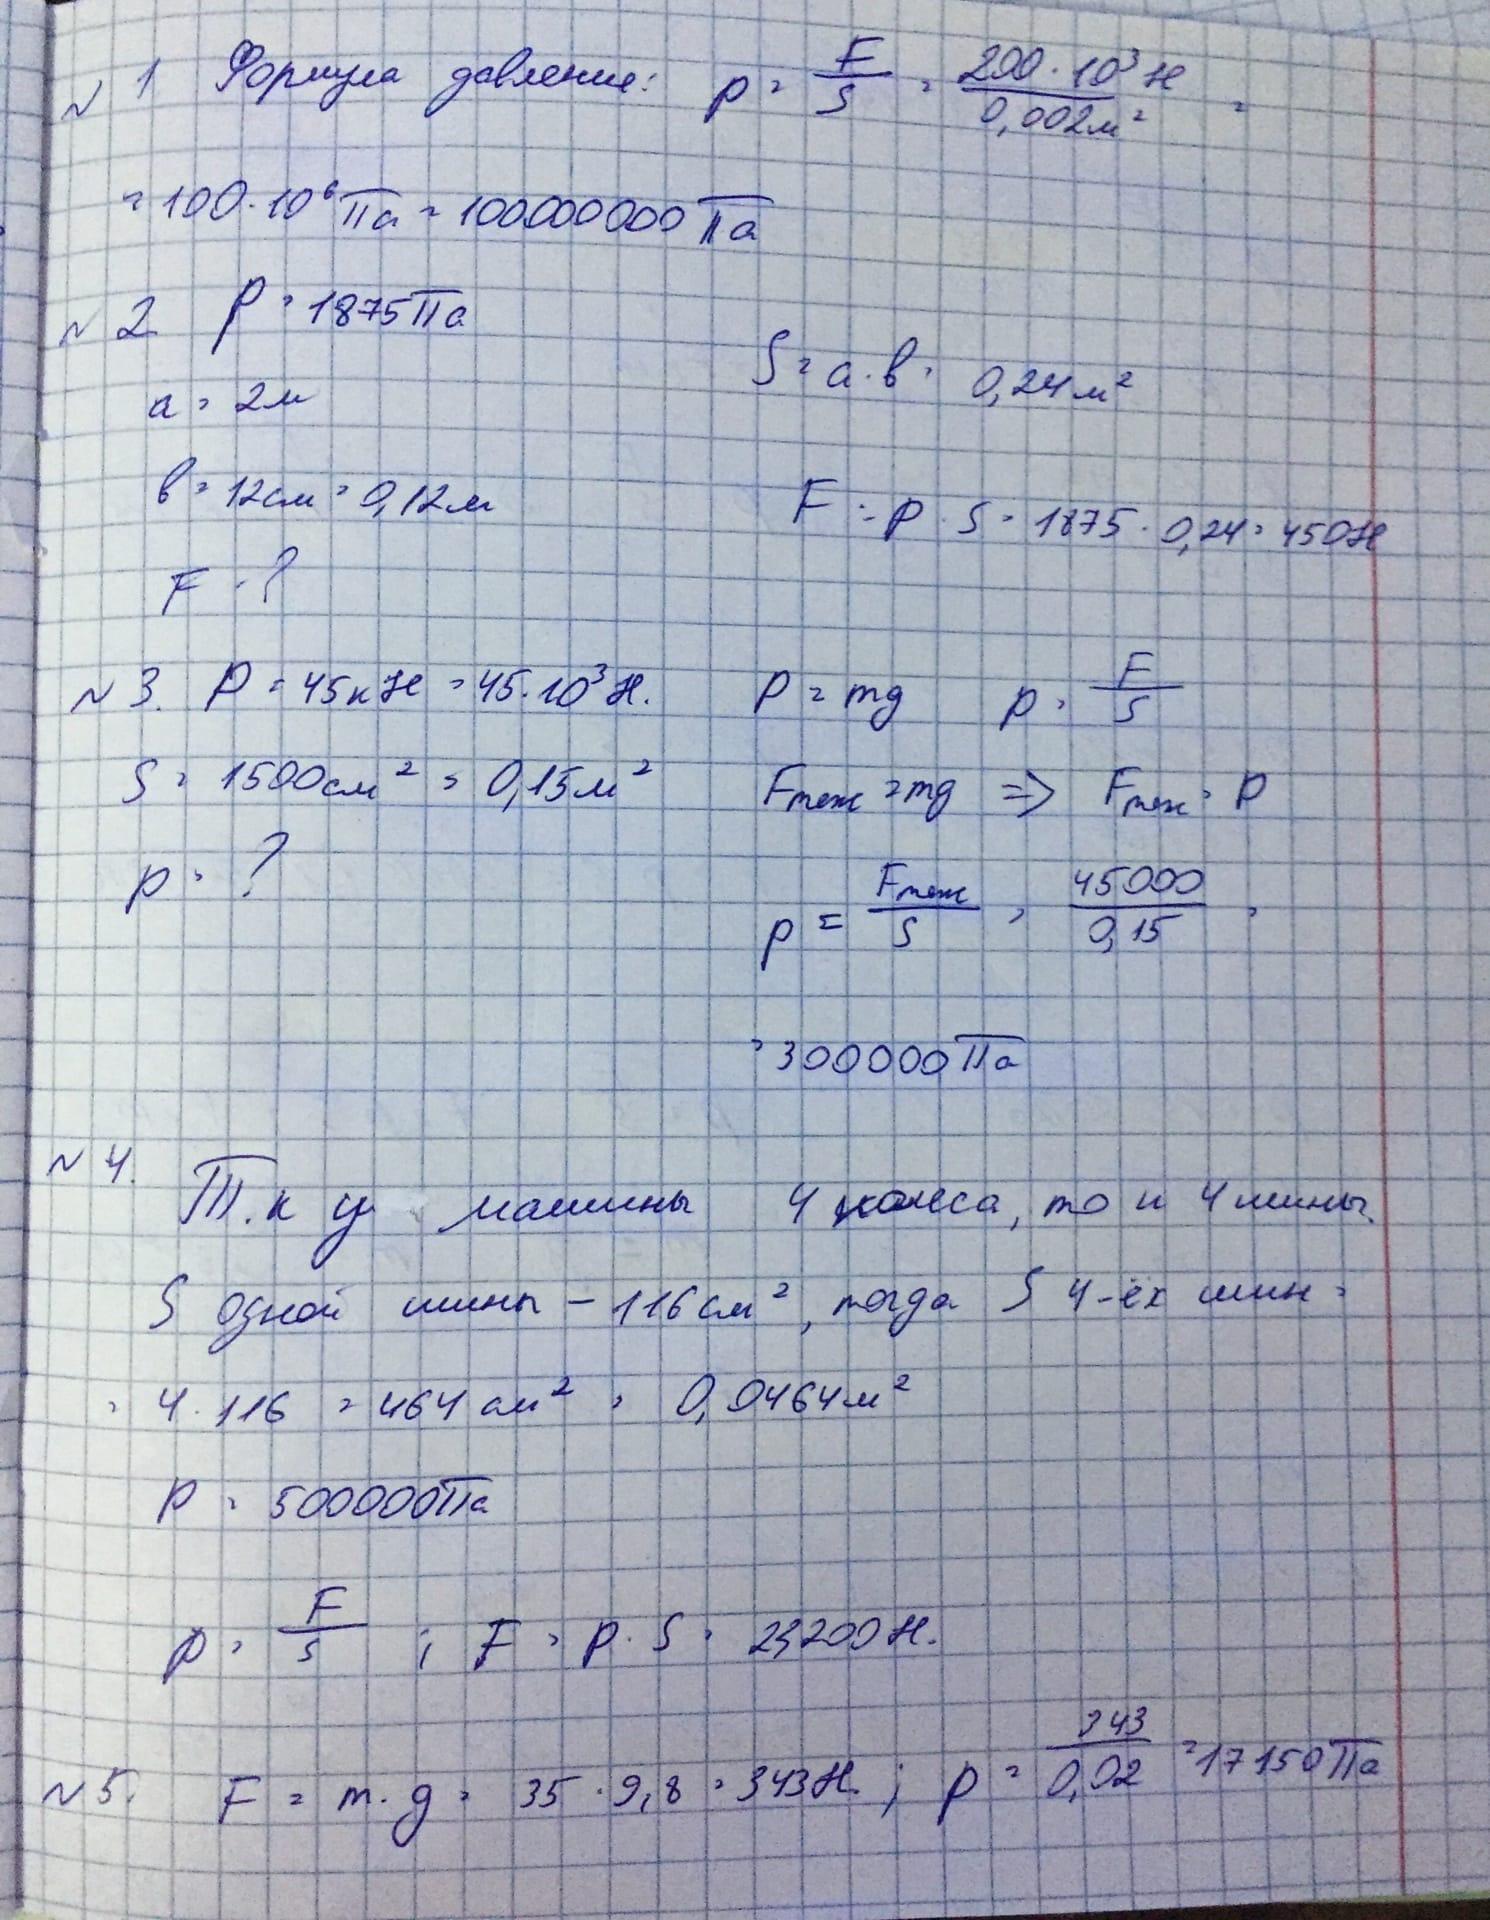 №1 Формула давление: p = F/S = 200·10³Н/0,002м² =
= 100·10⁶ Па = 100000000 Па
№2 P = 1875 Па
S = a·в = 0,24 м²
a = 2м
в = 12см = 0,12м
F = p·S = 1875·0,24 = 450Н
F - ?
№3. P = 45кН = 45·10³Н. P = mg p = F/S
S = 1500см² = 0,15м² Fтяж = mg => Fтяж = P
p = ? p = Fтяж/S = 45000/0,15 =
= 300000 Па
№4. Т.к у машины 4 колеса, то и 4 шины.
S одной шины - 116 см², тогда S 4-ёх шин =
= 4·116 = 464 см² = 0,0464м²
P = 500000Па
p = F/S ; F = p·S = 23200Н.
№5. F = m·g = 35·9,8 = 343Н. ; p = 343/0,02 = 17150Па